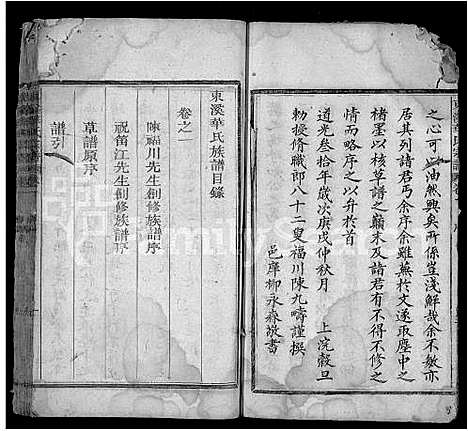 之心可以油然興矣所係豈淺鮮哉余不敏亦
居其列諸君丐余序余雖蕪於文遂取塵中之
楮墨以核草譜之顛末及諸君有不得不修之
情而略序之以升於首
道光叁拾年歲次庚戌仲秋月 上浣穀旦
勅授修職郎八十二叟福川陳九疇謹撰
邑庠柳永森敬書
東溪華氏族譜目錄
卷之
陳福川先生創修族譜序
祝笛江先生創修族譜序
草譜原序
譜引